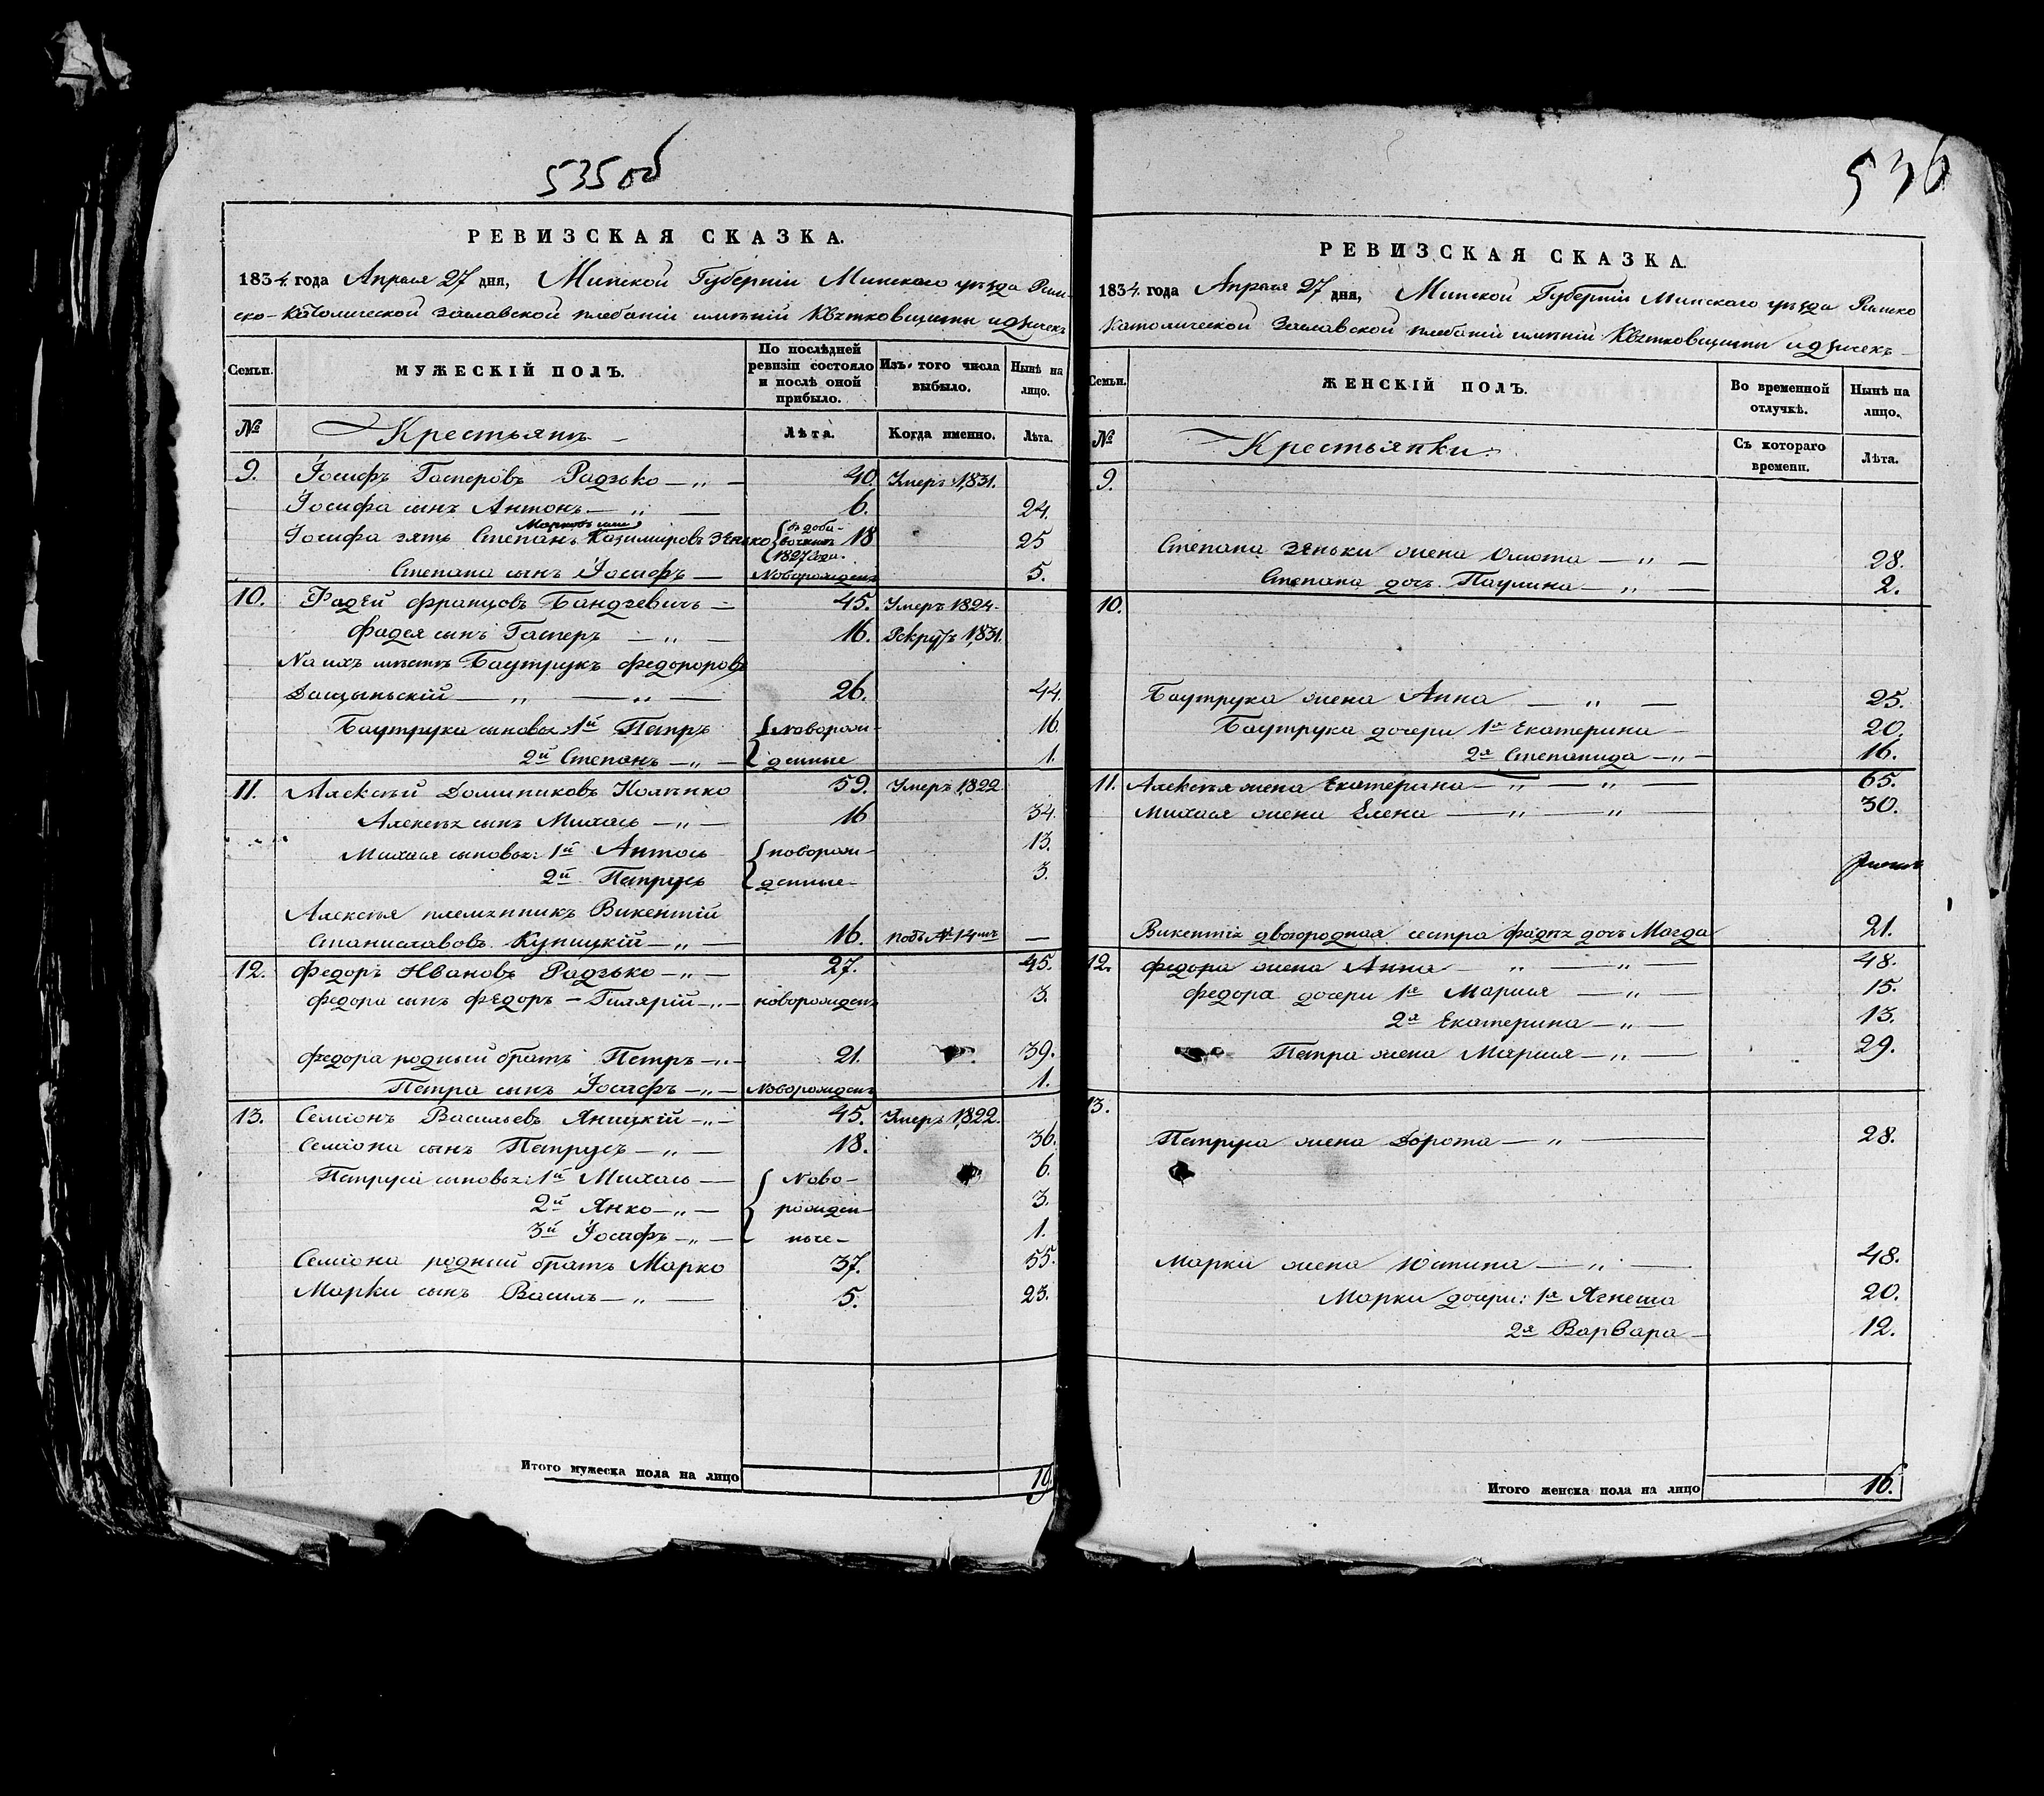 535 об
РЕВИЗСКАЯ СКАЗКА.
1834. года Апреля 27 дня, Минской Губерніи Минскаго уѣзда Рим-
ско-Католической Заславской плебаніи имѣній Квѣтковщизны и
Семьи.
МУЖЕСКІЙ ПОЛЪ.
По послѣдней ревизіи состояло и послѣ оной прибыло.
Изъ того числа выбыло.
Нынѣ на лицо.
№
Крестьянъ
Лѣта.
Когда именно.
Лѣта.
9. Іосифъ Гасперовъ Радзько 40 Умеръ 1831.
Іосифа сынъ Антонъ 6. 24.
Іосифа зять Степанъ Казимировъ Зенько 18 25
1827 года.
Степана сынъ Іосифъ Новорожденъ 5.
10. Фадей Францовъ Бандзевичъ 45. Умеръ 1824.
Фадея сынъ Гасперъ 16. Рекрутъ 1831.
На ихъ мѣстѣ Баутрукъ
26. 44.
Баутрука сыновья 1й Петръ новорож- 16
2й Степанъ денные 1.
11. Алексѣй Доминиковъ 59. Умеръ 1822
Алексѣя сынъ Михась 16 34.
Михася сыновья: 1й Антось новорож- 13.
2й Петрусь денные 3.
Алексѣя племянникъ Викентій
Станиславовъ Купицкій 16. подъ № 14мъ —
12. Федоръ Ивановъ Радзько 27. 45.
Федора сынъ Федоръ-Гилярій новорожденъ 3.
Федора родный братъ Петръ 21. 39.
Петра сынъ Іосифъ Новорожденъ 1.
13. Семіонъ Васильевъ Яницкій 45. Умеръ 1822.
Семіона сынъ Петрусь 18. 36.
Петруся сыновья: 1й Михась Ново- 6.
2й Янко рожден- 3.
3й Іосифъ ные 1.
Семіона родный братъ Марко 37. 55.
Марки сынъ Василь 5. 23.
Итого мужеска пола на лицо
536
РЕВИЗСКАЯ СКАЗКА.
1834. года Апреля 27 дня, Минской Губерніи Минскаго уѣзда Римско
Католической Заславской плебаніи имѣній Квѣтковщизны и
Семьи.
ЖЕНСКІЙ ПОЛЪ.
Во временной отлучкѣ.
Нынѣ на лицо.
№
Крестьянки.
Съ котораго времени.
Лѣта.
9.
Степана Зеньки жена 28.
Степана дочь Паулина 2.
10.
Баутрука жена Анна 25.
Баутрука дочери 1я Екатерина 20.
2я Степанида 16.
11. Алексѣя жена Екатерина 65.
Михася жена Елена 30.
Викентія двоюродная сестра Фадѣя дочь Магда 21.
12. Федора жена Анна 48.
Федора дочери 1я Марыя 15.
2я Екатерина 13.
Петра жена Марыя 29.
13.
Петруся жена Дорота 28.
Марки жена Юстина 48.
Марки дочери: 1я Агнеша 20.
2я Варвара 12.
Итого женска пола на лицо 16.